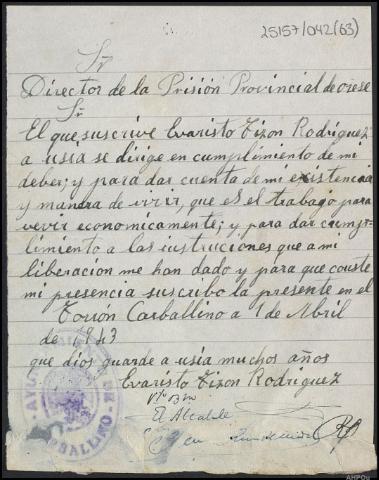 25157/042(63)
Sr
Director de la Prisión Provincial de orese
Sr
El que suscrive Evaristo Tizon Rodriguez
a usia se dirige en cumplimiento de mi
deber; y para dar cuenta de mi existencia
y manera de vivir, que es el trabajo para
vevir economicamente; y para dar cump-
limiento a las instruciones que a mi
liberacion me han dado y para que conste
mi presencia suscribo la presente en el
Carballino a 1 de Abril
de 1943
que dios guarde a usia muchos años
Evaristo Tizon Rodriguez
Vto Bno
El Alcalde
CARBALLINO
AHPOu